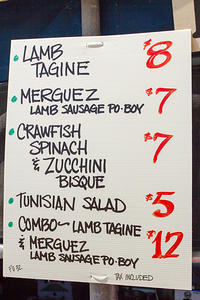 LAMB $8
TAGINE
MERGUEZ $7
LAMB SAUSAGE PO·BOY
CRAWFISH $7
SPINACH
& ZUCCHINI
BISQUE
TUNISIAN SALAD $5
COMBO~ LAMB TAGINE $12
& MERGUEZ
LAMB SAUSAGE PO·BOY
TAX INCLUDED